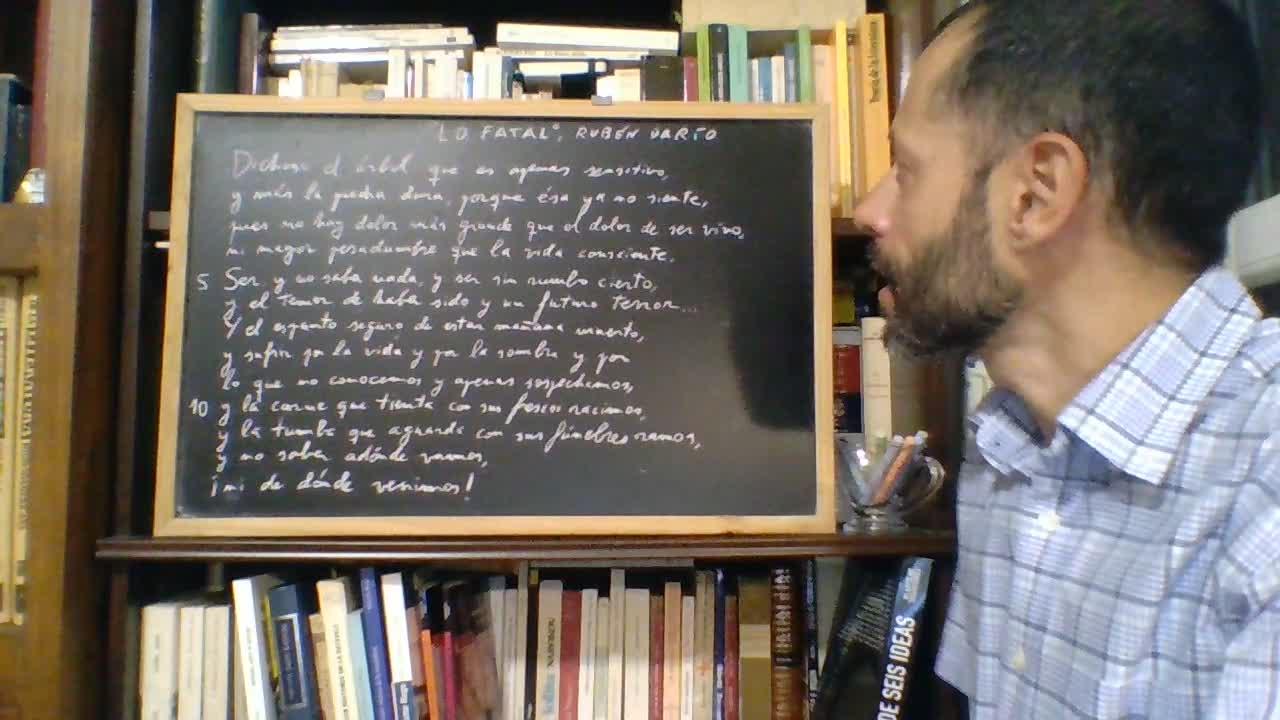 "LO FATAL", RUBÉN DARÍO
Dichoso el árbol que es apenas sensitivo,
y más la piedra dura, porque ésa ya no siente,
pues no hay dolor más grande que el dolor de ser vivo,
ni mayor pesadumbre que la vida consciente.
5 Ser, y no saber nada, y ser sin rumbo cierto,
y el temor de haber sido y un futuro terror...
Y el espanto seguro de estar mañana muerto,
y sufrir por la vida y por la sombra y por
lo que no conocemos y apenas sospechamos,
10 y la carne que tienta con sus frescos racimos,
y la tumba que aguarda con sus fúnebres ramos,
y no saber adónde vamos,
¡ni de dónde venimos!
DE SEIS IDEAS